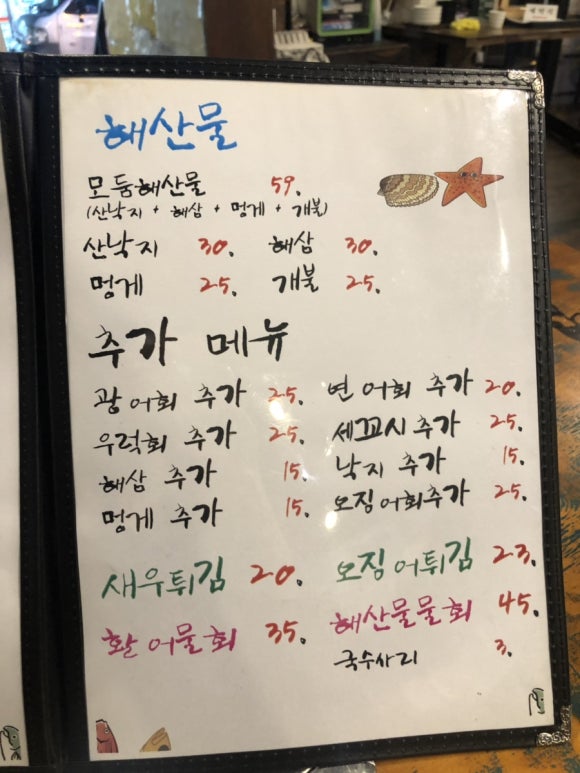 해산물
모둠해산물 59.
(산낙지 + 해삼 + 멍게 + 개불)
산낙지 30. 해삼 30.
멍게 25. 개불 25.
추가 메뉴
광어회 추가 25. 연어회 추가 20.
우럭회 추가 25. 세꼬시 추가 25.
해삼 추가 15. 낙지 추가 15.
멍게 추가 15. 오징어회추가 25.
새우튀김 20. 오징어튀김 23.
환어물회 35. 해산물물회 45.
국수사리 3.